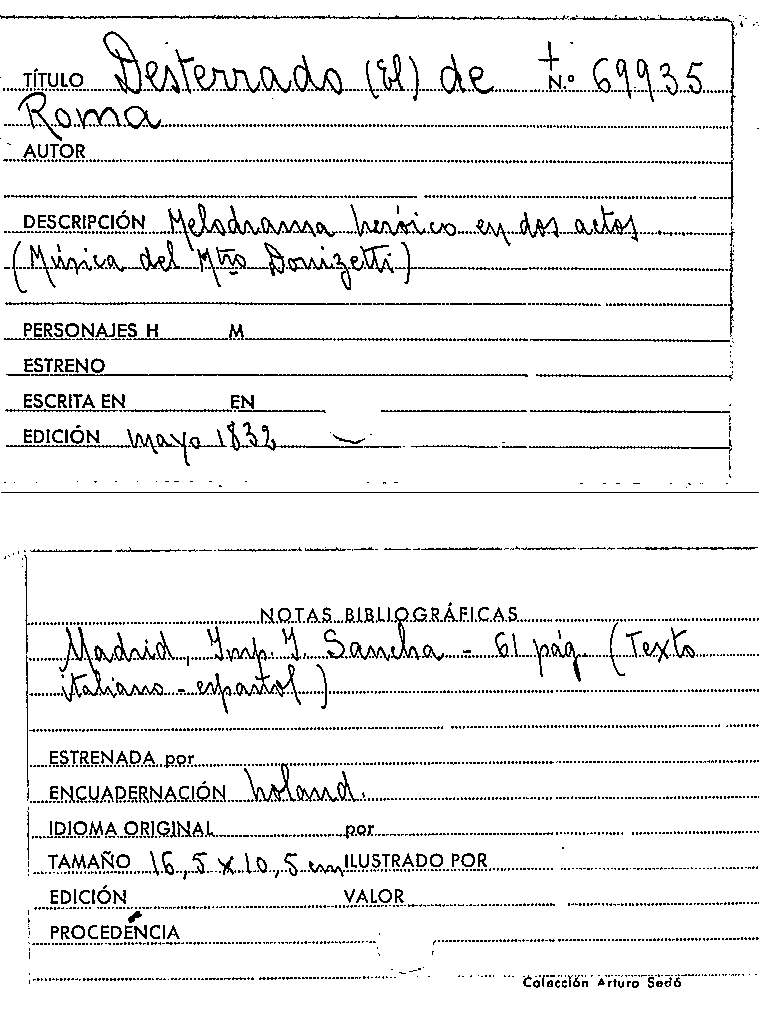 TÍTULO Desterrado (El) de + N.º 69935
Roma
AUTOR
DESCRIPCIÓN Melodrama heróico en dos actos.
(Música del Mtro Donizetti)
PERSONAJES H M
ESTRENO
ESCRITA EN EN
EDICIÓN mayo 1832
NOTAS BIBLIOGRÁFICAS
Madrid, Imp. I. Sancha - 61 pág. (Texto
italiano - español)
ESTRENADA por
ENCUADERNACIÓN holand.
IDIOMA ORIGINAL por
TAMAÑO 16,5 x 10,5 cm ILUSTRADO POR
EDICIÓN VALOR
PROCEDENCIA
Colección Arturo Sedó